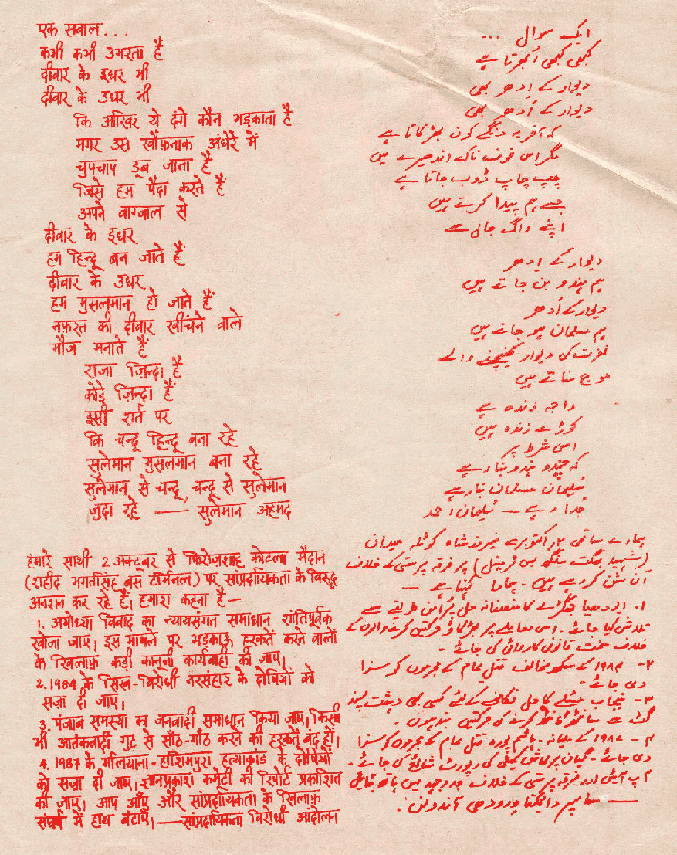 एक सवाल...
कभी कभी उभरता है
दीवार के इधर भी
दीवार के उधर भी
कि आखिर ये दंगे कौन भड़काता है
मगर उस खौफ़नाक अंधेरे में
चुपचाप डूब जाता है
जिसे हम पैदा करते हैं
अपने वाग्जाल से
दीवार के इधर
हम हिन्दू बन जाते हैं
दीवार के उधर
हम मुसलमान हो जाते हैं
नफ़रत की दीवार खींचने वाले
मौज मनाते हैं
राजा ज़िन्दा है
कोड़े ज़िन्दा हैं
इसी शर्त पर
कि चन्दू हिन्दू बना रहे
सुलेमान मुसलमान बना रहे
सुलेमान से चन्दू, चन्दू से सुलेमान
जुदा रहे — सुलेमान अहमद
हमारे साथी 2 अक्टूबर से फिरोजशाह कोटला मैदान
(शहीद भगतसिंह बस टर्मिनल) पर सांप्रदायिकता के विरुद्ध
अनशन कर रहे हैं। हमारा कहना है—
1. अयोध्या विवाद का न्यायसंगत समाधान शांतिपूर्वक
खोजा जाए। इस मामले पर भड़काऊ हरकतें करने वालों
के खिलाफ़ कड़ी कानूनी कार्यवाही की जाए।
2. 1984 के सिख-विरोधी नरसंहार के दोषियों को
सज़ा दी जाए।
3. पंजाब समस्या का जनवादी समाधान किया जाए। किसी
भी आतंकवादी गुट से साँठ-गाँठ करने की हरकतें बंद हों।
4. 1987 के मलियाना-हाशिमपुरा हत्याकांड के दोषियों
को सज़ा दी जाए। ज्ञानप्रकाश कमेटी की रिपोर्ट प्रकाशित
की जाए। आप आएं और सांप्रदायिकता के खिलाफ़
संघर्ष में हाथ बटाएं।—सांप्रदायिकता विरोधी आंदोलन
ایک سوال ...
کبھی کبھی اُبھرتا ہے
دیوار کے اِدھر بھی
دیوار کے اُدھر بھی
کہ آخر یہ دنگے کون بھڑکاتا ہے
مگر اس خوف ناک اندھیرے میں
چپ چاپ ڈوب جاتا ہے
جسے ہم پیدا کرتے ہیں
اپنے واگ جال سے
دیوار کے اِدھر
ہم ہندو بن جاتے ہیں
دیوار کے اُدھر
ہم مسلمان ہو جاتے ہیں
نفرت کی دیوار کھینچنے والے
موج مناتے ہیں
راجہ زندہ ہے
کوڑے زندہ ہیں
اسی شرط پر
کہ چندو ہندو بنا رہے
سُلیمان مسلمان بنا رہے
جدا رہے — سُلیمان احمد
ہمارے ساتھی ۲ اکتوبر سے فیروز شاہ کوٹلہ میدان
(شہید بھگت سنگھ بس ٹرمینل) پر فرقہ پرستی کے خلاف
اَن شن کر رہے ہیں۔ ہمارا کہنا ہے —
۱۔ ایودھیا جھگڑے کا منصفانہ حل پرامن طریقے سے
تلاش کیا جائے۔ اس معاملے پر بھڑکاؤ حرکتیں کرنے والوں کے
خلاف سخت قانونی کاروائی کی جائے۔
۲۔ ۱۹۸۴ کے سکھ مخالف قتل عام کے مجرموں کو سزا
دی جائے۔
۳۔ پنجاب مسئلے کا حل نکالنے کے لئے کسی بھی دہشت پسند
گٹ سے سانٹھ گانٹھ کرنے کی حرکتیں بند ہوں۔
۴۔ ۱۹۸۷ کے ملیانہ۔ ہاشم پورہ قتل عام کے مجرموں کو سزا
دی جائے۔ گیان پرکاش کمیٹی کی رپورٹ شائع کی جائے۔
آپ آئیں اور فرقہ پرستی کے خلاف جدوجہد میں ہاتھ بٹائیں
— سامپردائیکتا ورودھی آندولن۔